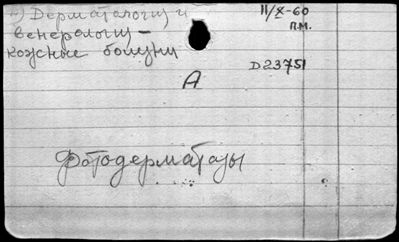 Дерматология и
11/X-60
венерология —
п.м.
кожные болезни
D23751
А
Фотодерматозы